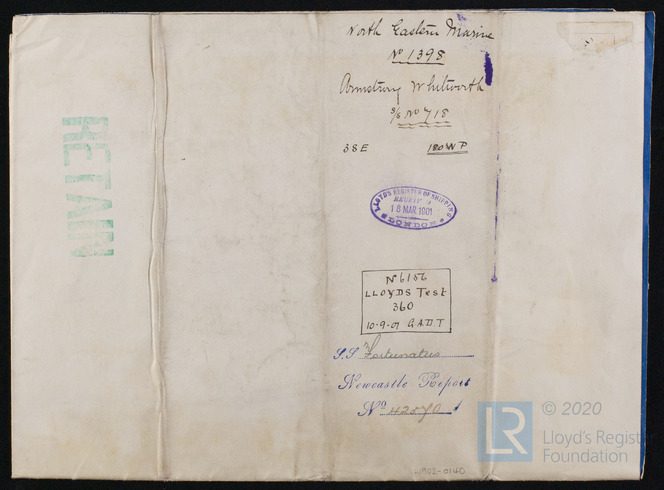 North Eastern Marine
No 1398
Armstrong Whitworth
S/S No 718
3SE 180 WP
LLOYD'S REGISTER OF SHIPPING
RECEIVED
18 MAR. 1901
LONDON
No 6156
LLOYDS Test
360
10-9-07 G.A.D.T
S.S Fortunatus
Newcastle Report
No 42570
RETAIN
W902-0140
LR
© 2020
Lloyd's Register
Foundation